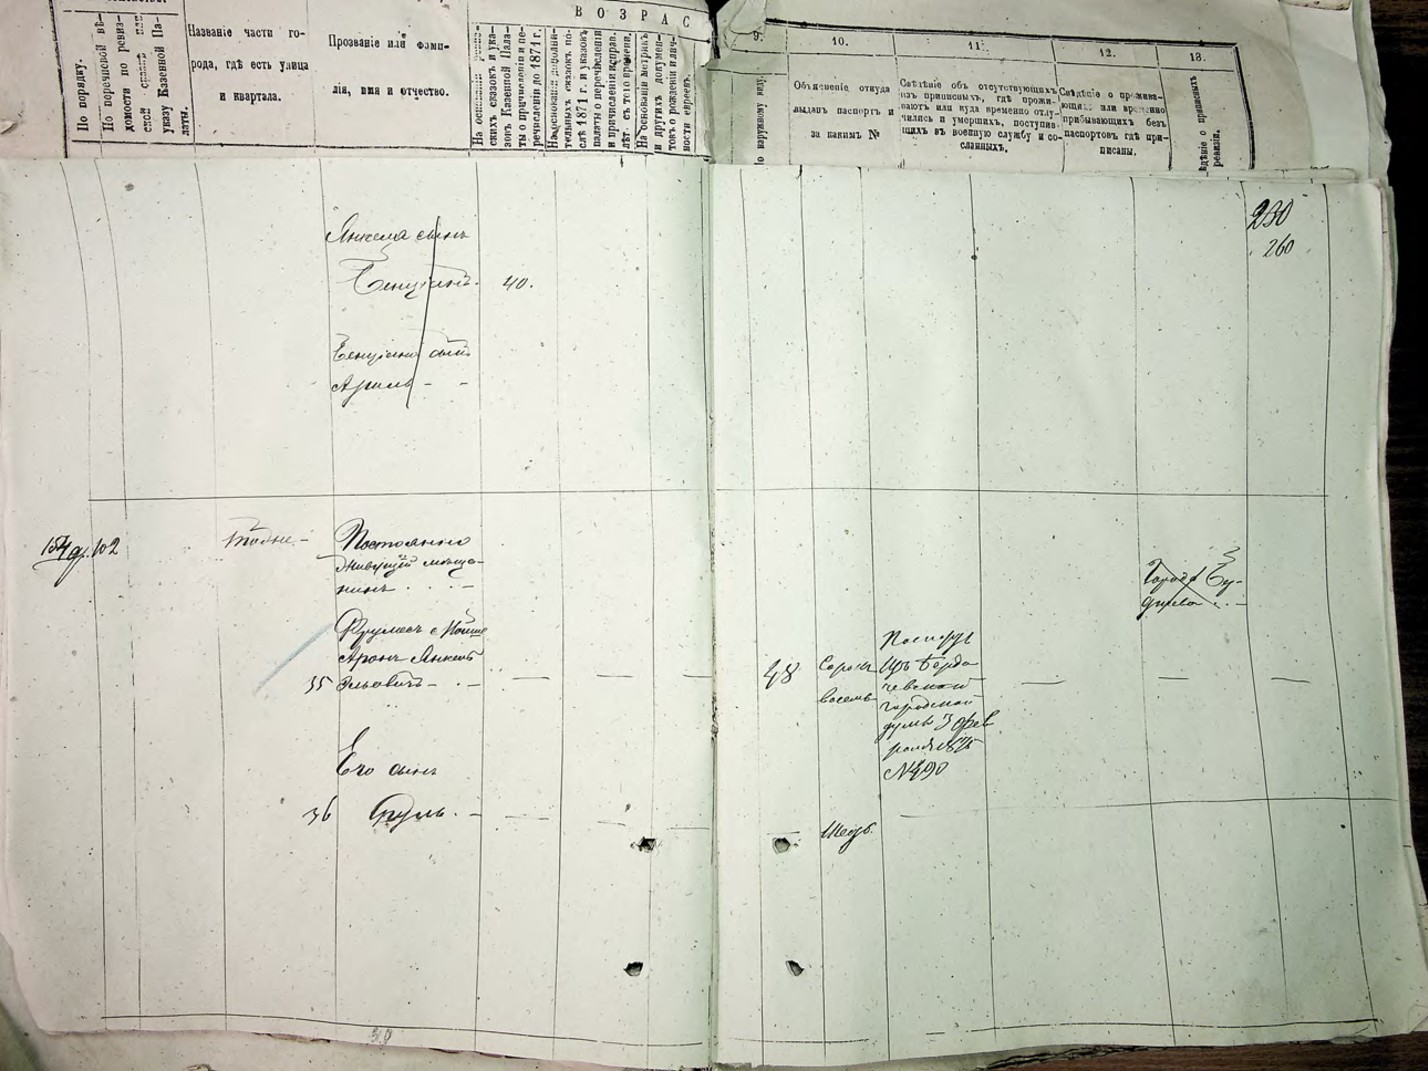 В О З Р А С
По порядку.
По перечневой вѣ-
домости по ревиз-
ской сказкѣ или
указу Казенной Па-
латы.
Названіе части го-
рода, гдѣ есть улица
и квартала.
Прозваніе или фами-
лія, имя и отчество.
На основаніи ревиз-
скихъ сказокъ и ука-
зовъ Казенной Пала-
ты о причисленіи и пе-
речисленіи до 1871 г.
На основаніи дополни-
тельныхъ сказокъ по-
слѣ 1871 г. и указовъ
палаты о перечисленіи
и причисленіи исправ.
лѣт. съ того времени.
На основаніи метрикъ
и другихъ докумен-
товъ о рожденіи и лич-
ности евреевъ.
9.
10.
11.
12.
13.
По наружному виду.
Объясненіе откуда
выданъ паспортъ и
за какимъ №
Свѣдѣніе объ отсутствующихъ
изъ приписныхъ, гдѣ прожи-
ваютъ или куда временно отлу-
чились и умершихъ, поступив-
щихъ въ военную службу и со-
сланныхъ.
Свѣдѣніе о прожива-
ющихъ или временно
прибывающихъ безъ
паспортовъ гдѣ при-
писаны.
ѣдѣніе о приписныхъ
ревизіи.
230
260
Янкеля сынъ
Бенціонъ. 40.
Бенціона сынъ
154 др. 102
Постоянно
живущій мѣща-
нинъ
Города Бу-
Аронъ Янкель
35
48 Сорокъ
восемь
Изъ Берди-
чевской
городской
думы 3 фев
раля 1875
№ 490
Его сынъ
36 Сруль.